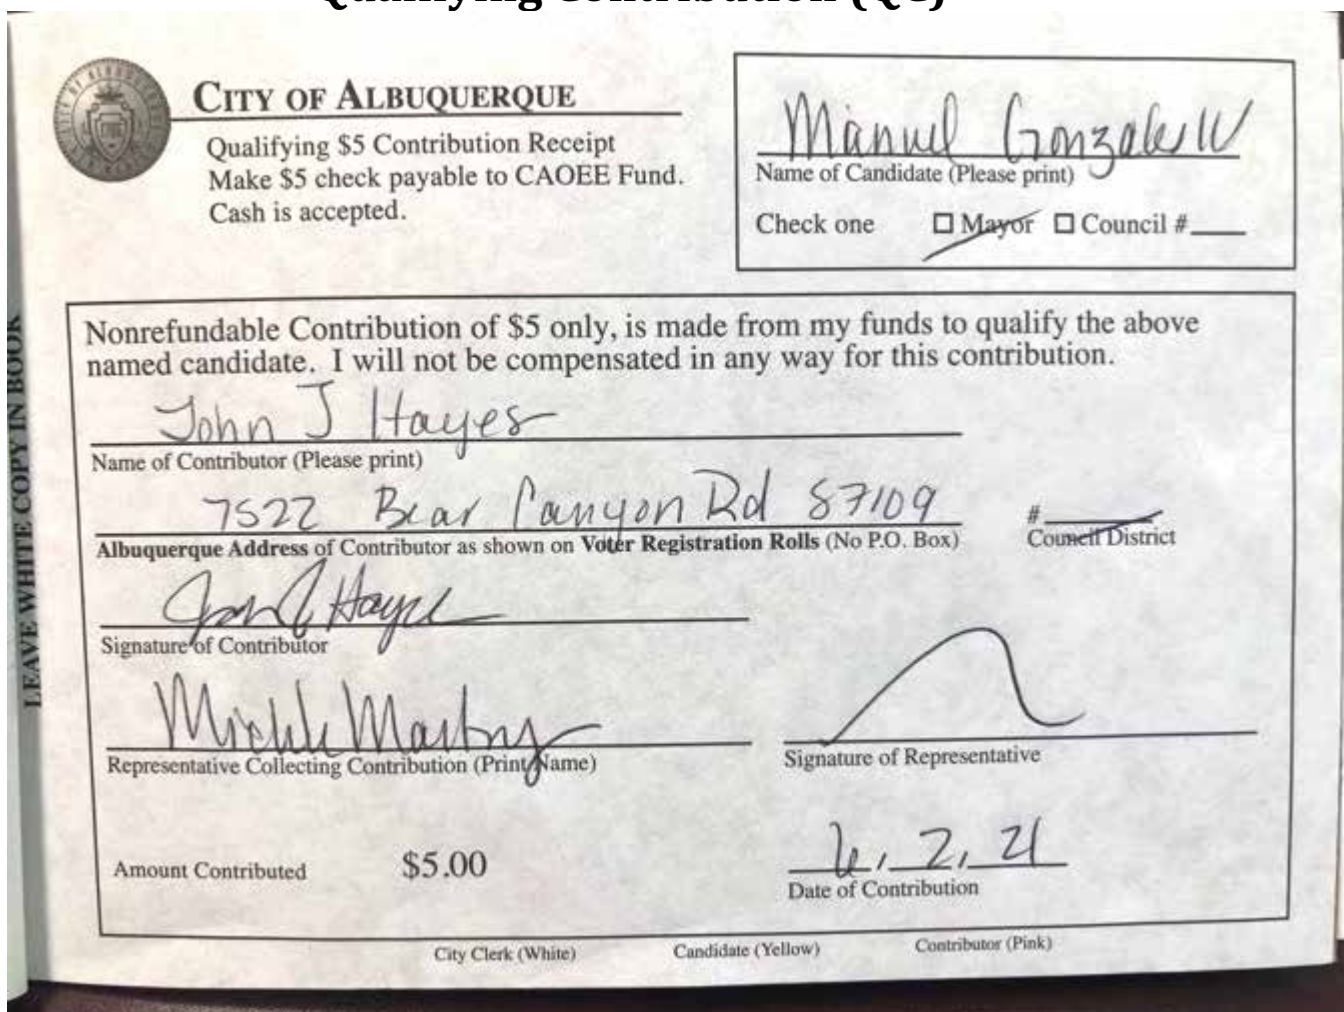 Qualifying Contribution (QC)
CITY OF ALBUQUERQUE
Qualifying $5 Contribution Receipt
Make $5 check payable to CAOEE Fund.
Cash is accepted.
Manuel Gonzales
Name of Candidate (Please print)
Check one ☐ Mayor ☐ Council #
LEAVE WHITE COPY IN BOOK
Nonrefundable Contribution of $5 only, is made from my funds to qualify the above
named candidate. I will not be compensated in any way for this contribution.
John J Hayes
Name of Contributor (Please print)
7522 Bear Canyon Rd 87109
#
Albuquerque Address of Contributor as shown on Voter Registration Rolls (No P.O. Box)
Council District
John J Hayes
Signature of Contributor
Representative Collecting Contribution (Print Name)
Signature of Representative
6, 2, 21
Amount Contributed $5.00
Date of Contribution
City Clerk (White) Candidate (Yellow) Contributor (Pink)